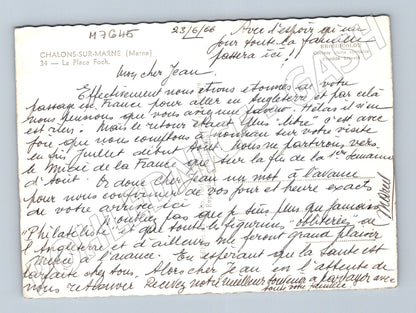 M7G45
23/6/66
Avec l'espoir qu'un
jour toute la famille
passera ici !
CHALONS-SUR-MARNE (Marne)
34 - La Place Foch.
Mon cher Jean.
Effectivement nous étions étonnés de votre
passage en France pour aller en Angleterre et par cela
nous pensions que vous aviez une Hélas il n'en
est rien. Mais le retour étant plus "libre" c'est avec
foie que nous comptons à nouveau sur votre visite
en fin Juillet début Août. Nous ne partirons vers
le Midi de la France que sur la fin de la 1ère semaine
d'Août. Et donc cher Jean un mot à l'avance
pour nous confirmer de vos jour et heure exacts
de votre arrivée ici
oubliez pas que je suis plus que jamais
"Philatéliste" et que toute figurine oblitérée de
l'Angleterre et d'ailleurs me feront grand plaisir
Merci à l'avance. En espérant que la santé est
parfaite chez tous. Alors cher Jean en l'attente de
vous retrouver Recevez notre meilleur souvenir à partager avec
toute votre famille.
Marcel